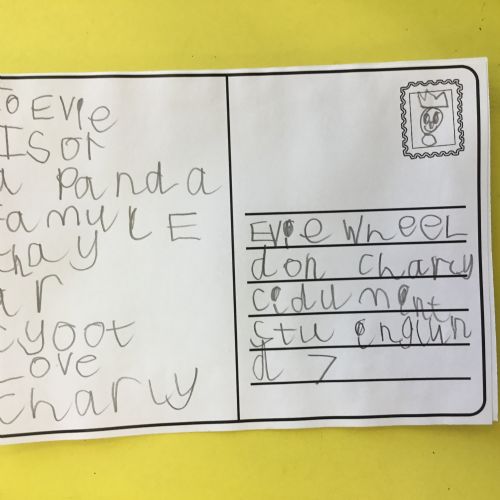 To EVIE
I SOr
a Panda
FamuLE
thay
ar
cyoot
Love
Charly
EVIE WHEEL
don charly
cidument
stu englun
d 7